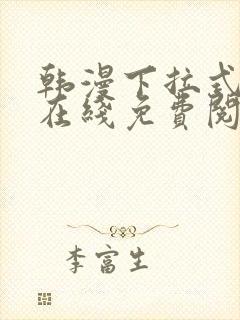 韩漫下拉式
在线免費閱
李富生